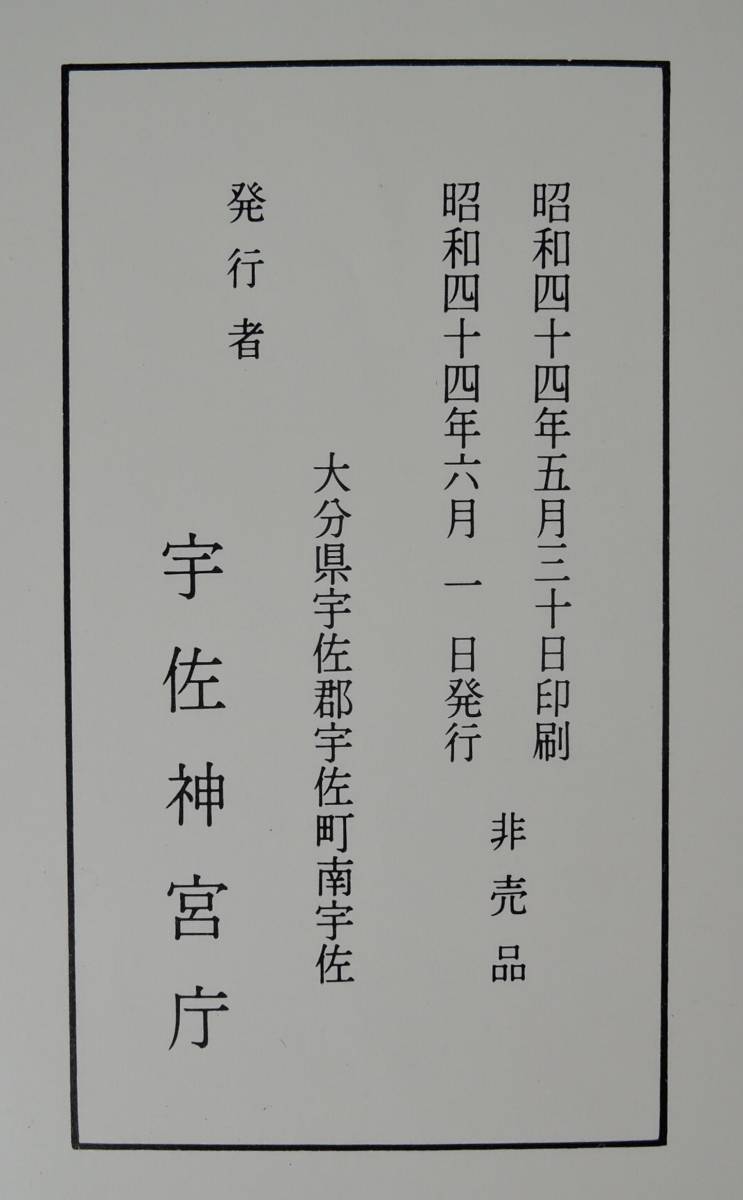 昭和四十四年五月三十日印刷
昭和四十四年六月一日発行
非売品
大分県宇佐郡宇佐町南宇佐
発行者
宇佐神宮庁